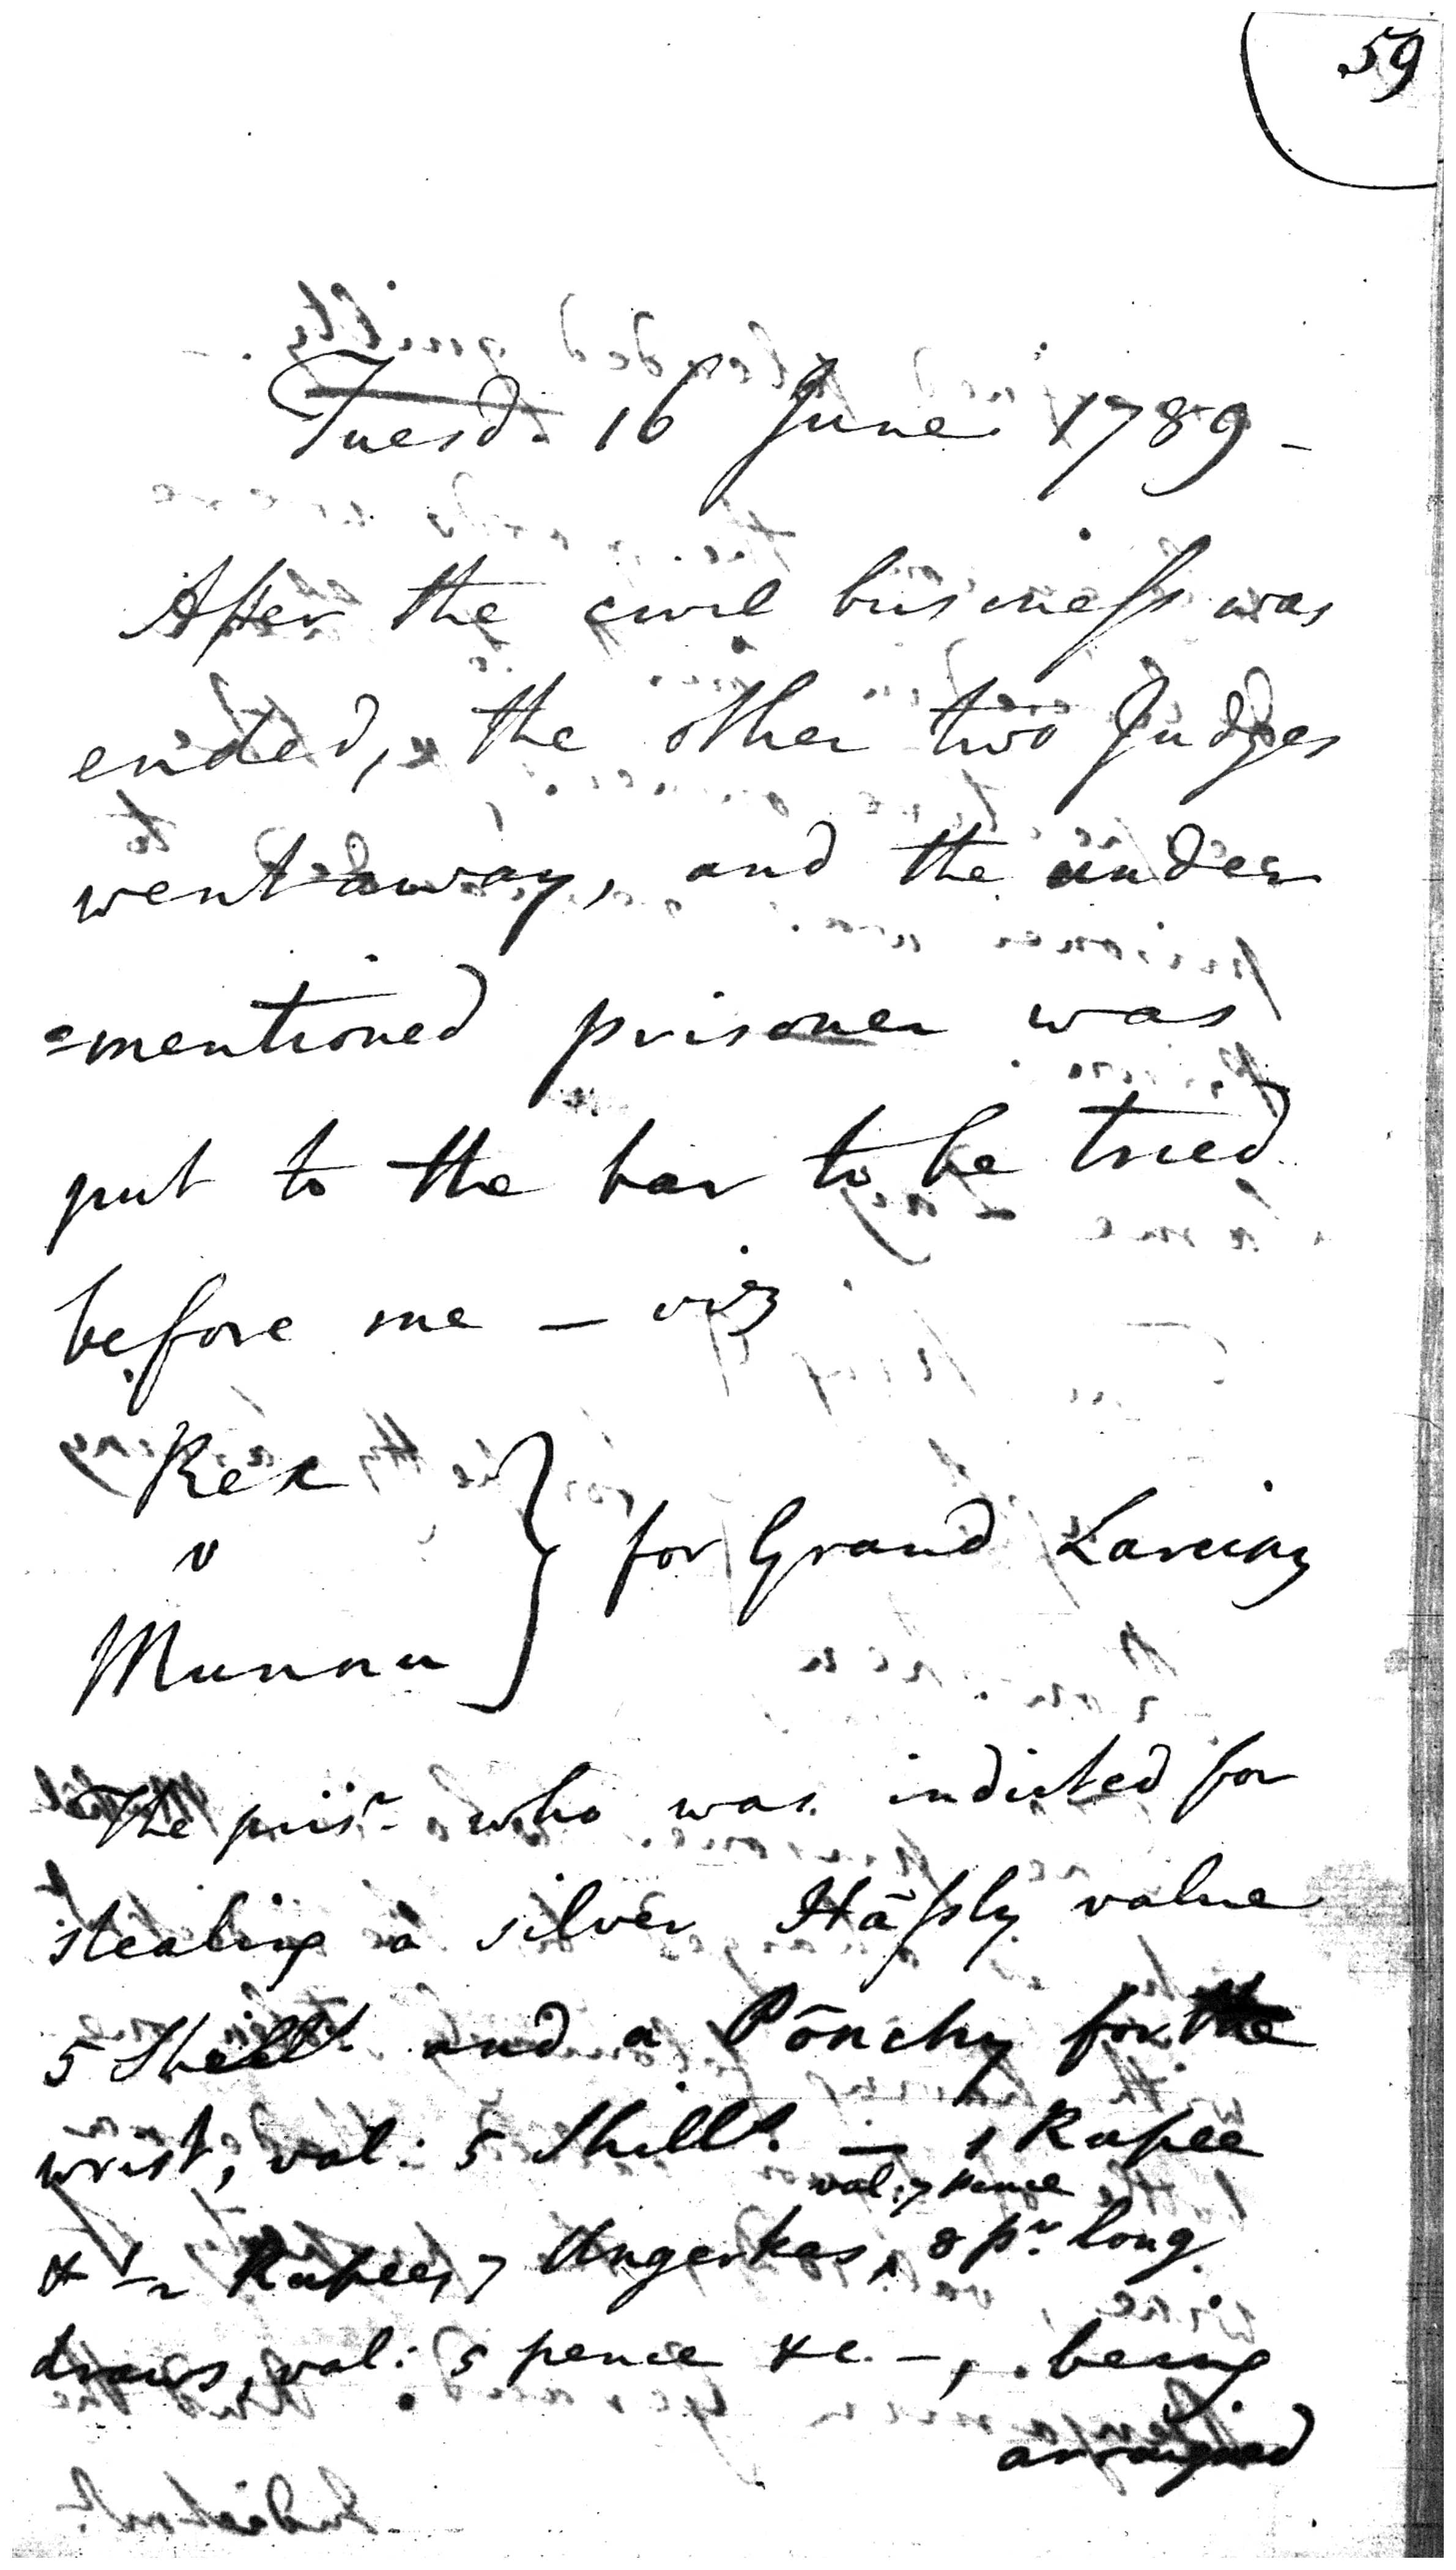 59
Tuesd. 16 June 1789 -
After the civil business was
ended, the other two Judges
went away, and the under
=mentioned prisoner was
put to the bar to be tried
before me — viz
Rex
v
Munnu
} for Grand Larceny
The prisr who was indicted for
stealing a silver Hāssly value
5 Shills. and a Pōnchy for the
wrist, val: 5 Shills. — 1 Rupee
val: 7 pence
& ½ Rupee, 7 Ungerkas, 8 pr long
draws, val: 5 pence &c. —, being
arraigned